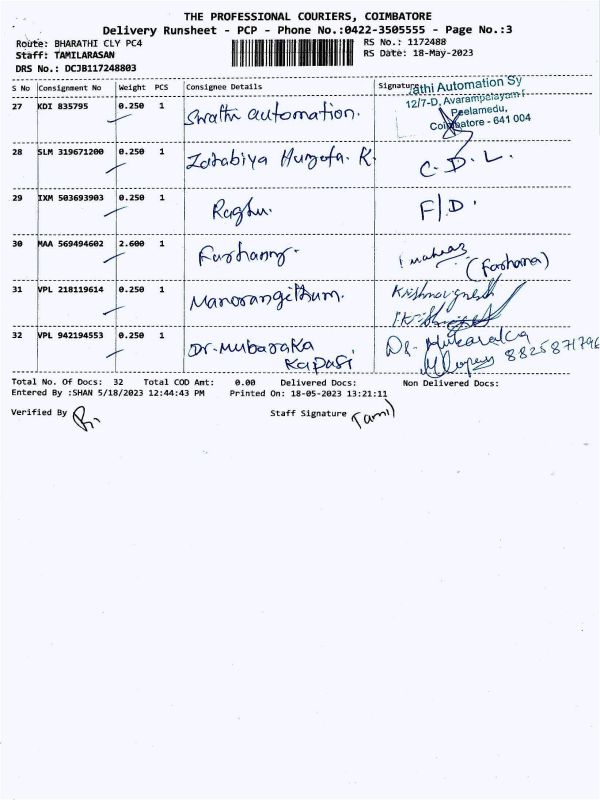 THE PROFESSIONAL COURIERS, COIMBATORE
Delivery Runsheet - PCP - Phone No.:0422-3505555 - Page No.:3
Route: BHARATHI CLY PC4
RS No.: 1172488
Staff: TAMILARASAN
RS Date: 18-May-2023
DRS No.: DCJB117248803
S No Consignment No Weight PCS Consignee Details Signature
27 KDI 835795 0.250 1 Swathi automation.
athi Automation Sy
12/7-D, Avarampalayam
Peelamedu,
Coimbatore - 641 004
28 SLM 319671200 0.250 1 K. C.D.L.
29 IXM 503693903 0.250 1 Raghu. F/D.
30 MAA 569494602 2.600 1 (Farhana)
31 VPL 218119614 0.250 1 Manorangithum. Krishnavignesh
32 VPL 942194553 0.250 1 Dr. Mubaraka Kapasi
Dr. 8825871796
Total No. Of Docs: 32 Total COD Amt: 0.00 Delivered Docs: Non Delivered Docs:
Entered By :SHAN 5/18/2023 12:44:43 PM Printed On: 18-05-2023 13:21:11
Verified By Staff Signature Tamil